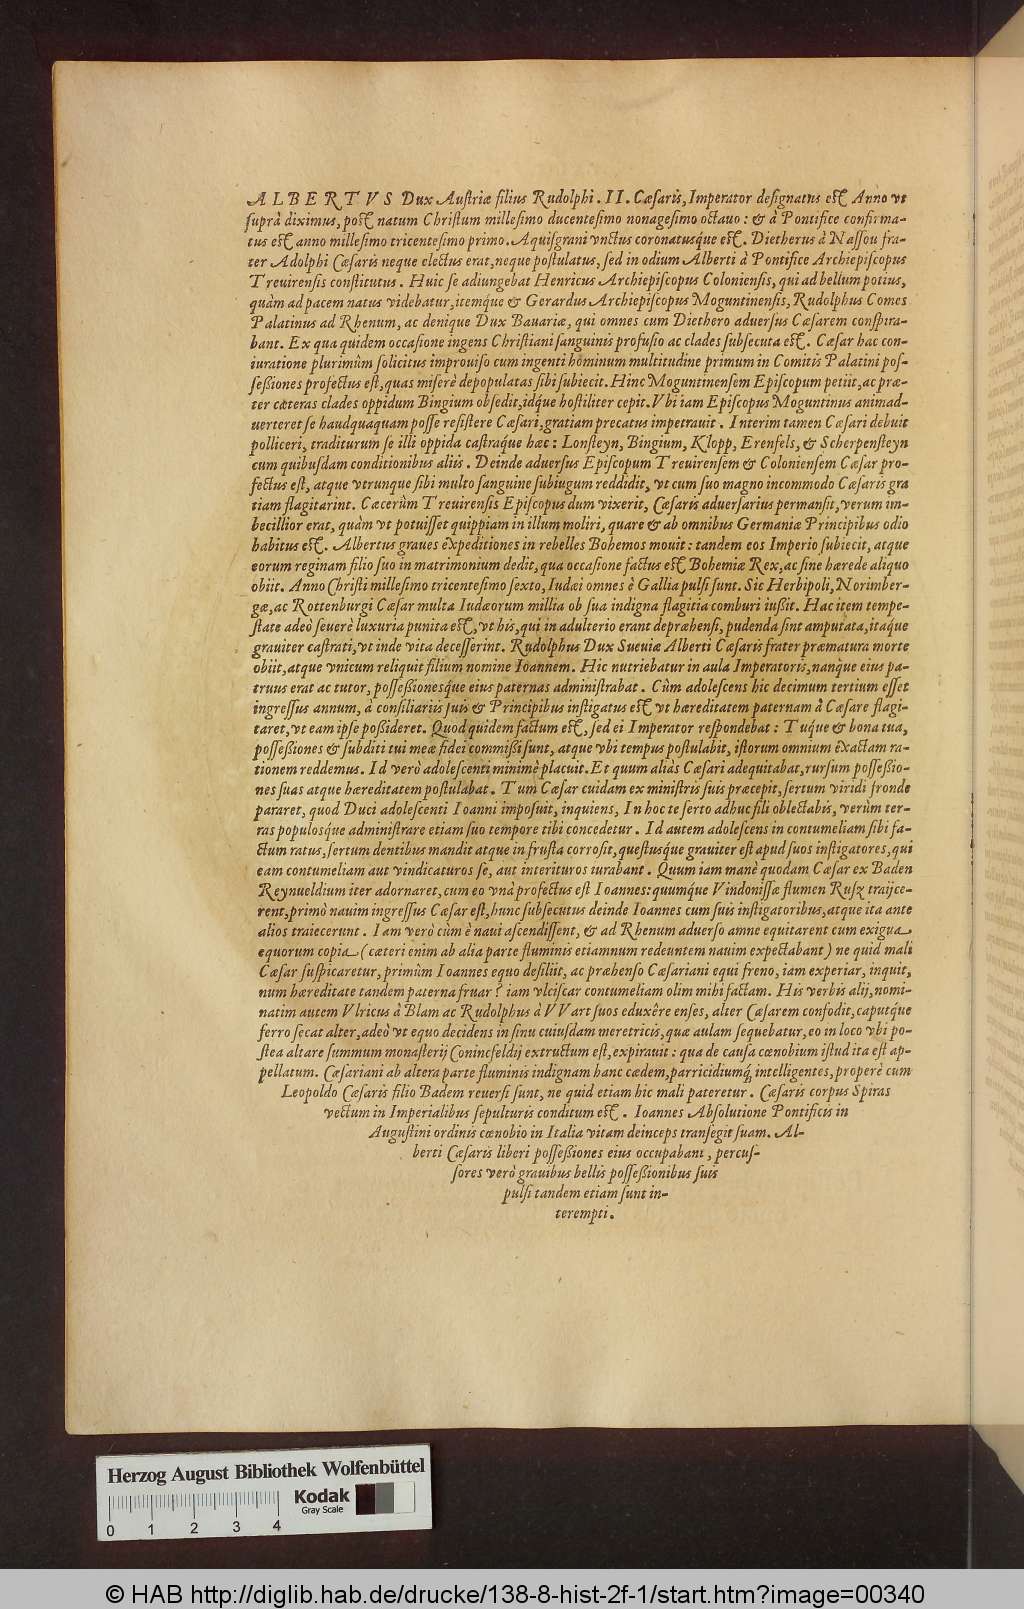 ALBERTVS Dux Austriæ filius Rudolphi. II. Cæsaris, Imperator designatus est Anno vt
suprà diximus, post natum Christum millesimo ducentesimo nonagesimo octauo: & à Pontifice confirma-
tus est anno millesimo tricentesimo primo. Aquisgrani vnctus coronatusq́ue est. Dietherus à Nassou fra-
ter Adolphi Cæsaris neque electus erat, neque postulatus, sed in odium Alberti à Pontifice Archiepiscopus
Treuirensis constitutus. Huic se adiungebat Henricus Archiepiscopus Coloniensis, qui ad bellum potius,
quàm ad pacem natus videbatur, itemq́ue & Gerardus Archiepiscopus Moguntinensis, Rudolphus Comes
Palatinus ad Rhenum, ac denique Dux Bauariæ, qui omnes cum Diethero aduersus Cæsarem conspira-
bant. Ex qua quidem occasione ingens Christiani sanguinis profusio ac clades subsecuta est. Cæsar hac con-
iuratione plurimùm solicitus improuiso cum ingenti hominum multitudine primum in Comitis Palatini pos-
seßiones profectus est, quas miserè depopulatas sibi subiecit. Hinc Moguntinensem Episcopum petiit, ac præ-
ter cæteras clades oppidum Bingium obsedit, idq́ue hostiliter cepit. Vbi iam Episcopus Moguntinus animad-
uerteret se haudquaquam posse resistere Cæsari, gratiam precatus impetrauit. Interim tamen Cæsari debuit
polliceri, traditurum se illi oppida castraq́ue hæc: Lonsteyn, Bingium, Klopp, Erenfels, & Scherpensteyn
cum quibusdam conditionibus aliis. Deinde aduersus Episcopum Treuirensem & Coloniensem Cæsar pro-
fectus est, atque vtrunque sibi multo sanguine subiugum reddidit, vt cum suo magno incommodo Cæsaris gra
tiam flagitarint. Cæcerùm Treuirensis Episcopus dum vixerit, Cæsaris aduersarius permansit, verum im-
becillior erat, quàm vt potuisset quippiam in illum moliri, quare & ab omnibus Germaniæ Principibus odio
habitus est. Albertus graues expeditiones in rebelles Bohemos mouit: tandem eos Imperio subiecit, atque
eorum reginam filio suo in matrimonium dedit, qua occasione factus est Bohemiæ Rex, ac sine hærede aliquo
obiit. Anno Christi millesimo tricentesimo sexto, Iudæi omnes è Gallia pulsi sunt. Sic Herbipoli, Norimber-
gæ, ac Rottenburgi Cæsar multa Iudæorum millia ob sua indigna flagitia comburi iußit. Hac item tempe-
state adeò seuerè luxuria punita est, vt his, qui in adulterio erant depræhensi, pudenda sint amputata, itaq́ue
grauiter castrati, vt inde vita decesserint. Rudolphus Dux Sueuiæ Alberti Cæsaris frater præmatura morte
obiit, atque vnicum reliquit filium nomine Ioannem. Hic nutriebatur in aula Imperatoris, nanq́ue eius pa-
truus erat ac tutor, posseßionesq́ue eius paternas administrabat. Cùm adolescens hic decimum tertium esset
ingressus annum, à consiliariis suis & Principibus instigatus est vt hæreditatem paternam à Cæsare flagi-
taret, vt eam ipse poßideret. Quod quidem factum est, sed ei Imperator respondebat: Tuq́ue & bona tua,
posseßiones & subditi tui meæ fidei commißi sunt, atque vbi tempus postulabit, istorum omnium exactam ra-
tionem reddemus. Id verò adolescenti minimè placuit. Et quum aliàs Cæsari adequitabat, rursum posseßio-
nes suas atque hæreditatem postulabat. Tum Cæsar cuidam ex ministris suis præcepit, sertum viridi fronde
pararet, quod Duci adolescenti Ioanni imposuit, inquiens, In hoc te serto adhuc fili oblectabis, verùm ter-
ras populosq́ue administrare etiam suo tempore tibi concedetur. Id autem adolescens in contumeliam sibi fa-
ctum ratus, sertum dentibus mandit atque in frusta corrosit, questusq́ue grauiter est apud suos instigatores, qui
eam contumeliam aut vindicaturos se, aut interituros iurabant. Quum iam manè quodam Cæsar ex Baden
Reynueldium iter adornaret, cum eo vnà profectus est Ioannes: quumq́ue Vindonissæ flumen Rusz traijce-
rent, primò nauim ingressus Cæsar est, hunc subsecutus deinde Ioannes cum suis instigatoribus, atque ita ante
alios traiecerunt. Iam verò cùm è naui ascendissent, & ad Rhenum aduerso amne equitarent cum exigua
equorum copia (cæteri enim ab alia parte fluminis etiamnum redeuntem nauim expectabant) ne quid mali
Cæsar suspicaretur, primùm Ioannes equo desiliit, ac præhenso Cæsariani equi freno, iam experiar, inquit,
num hæreditate tandem paterna fruar? iam vlciscar contumeliam olim mihi factam. His verbis alij, nomi-
natim autem Vlricus à Blam ac Rudolphus à VVart suos eduxêre enses, alter Cæsarem confodit, caputq́ue
ferro secat alter, adeò vt equo decidens in sinu cuiusdam meretricis, quæ aulam sequebatur, eo in loco vbi po-
stea altare summum monasterij Conincseldij extructum est, expirauit: qua de causa cœnobium istud ita est ap-
pellatum. Cæsariani ab altera parte fluminis indignam hanc cædem, parricidiumq́; intelligentes, properè cum
Leopoldo Cæsaris filio Badem reuersi sunt, ne quid etiam hic mali pateretur. Cæsaris corpus Spiras
vectum in Imperialibus sepulturis conditum est. Ioannes Absolutione Pontificis in
Augustini ordinis cœnobio in Italia vitam deinceps transegit suam. Al-
berti Cæsaris liberi posseßiones eius occupabant, percus-
sores verò grauibus bellis posseßionibus suis
pulsi tandem etiam sunt in-
terempti.
Herzog August Bibliothek Wolfenbüttel
Kodak
Gray Scale
0 1 2 3 4
© HAB http://diglib.hab.de/drucke/138-8-hist-2f-1/start.htm?image=00340